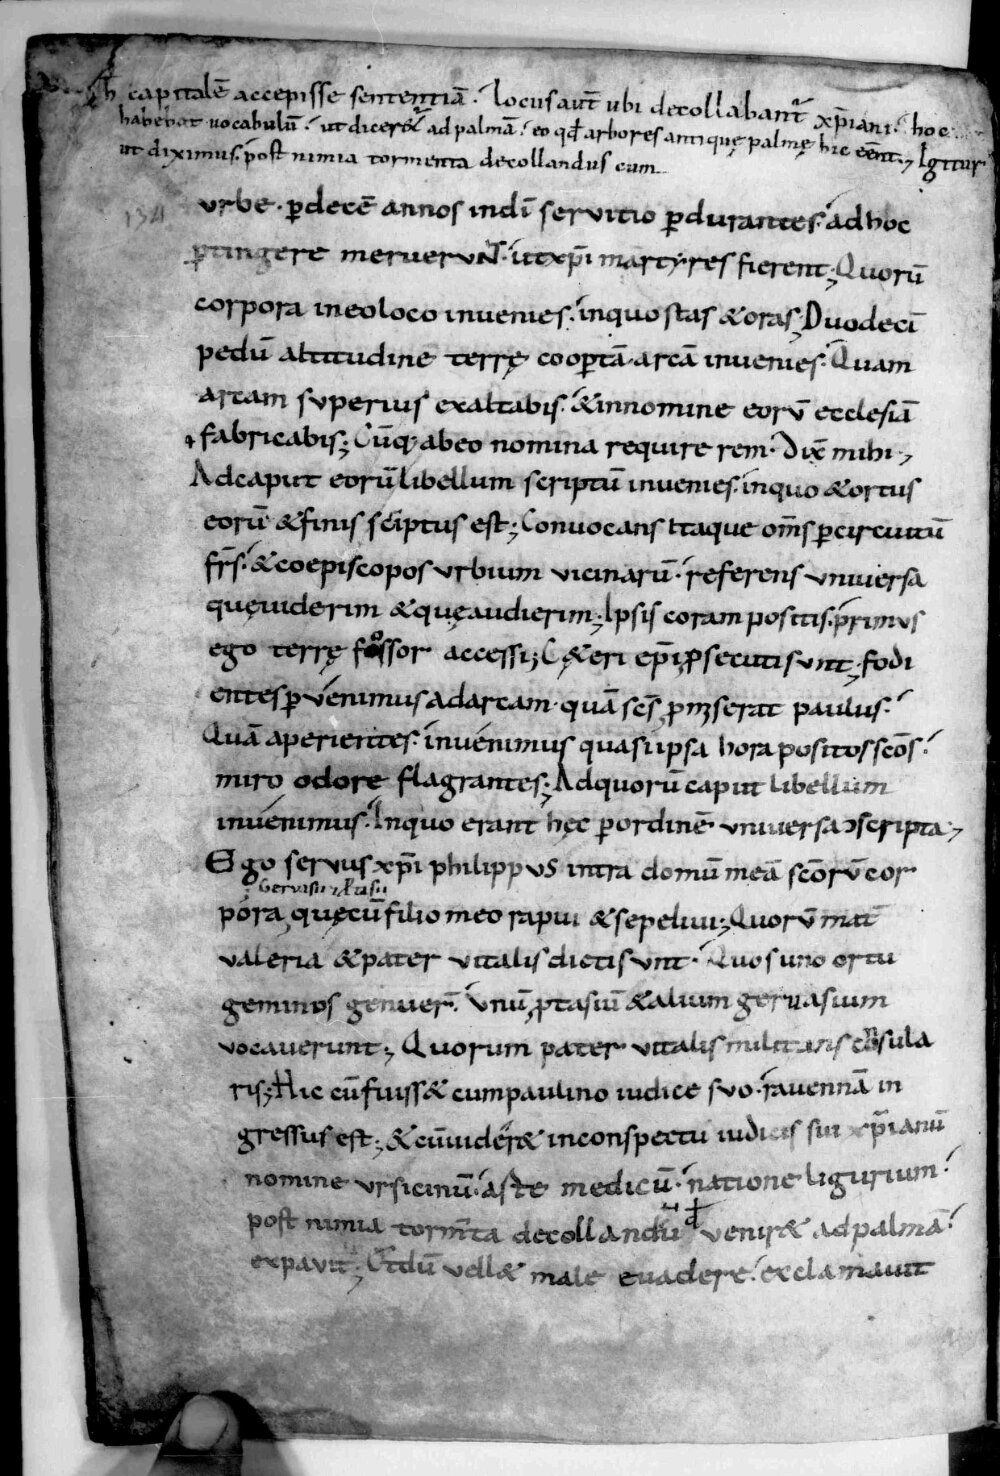 h capitalē accepisse sententiā. locus aut̄ ubi decollabant᷑ xp̄iani. hoc
habebat uocabulū. ut diceret᷑ ad palmā. eo qđ arbores antiquę palmę hic eēnt; Igitur
ut diximus. post nimia tormenta decollandus cum
134
urbe. ꝑdecē annos indī seruitio ꝑdurantes. adhoc
ꝑtingere meruerunt. utxp̄i martyres fierent; Quorū
corpora ineoloco inuenies. inquo stas & oras; Duodecī
pedū altitudine terrę cooꝑtā arcā inuenies. Quam
arcam superius exaltabis. & innomine eorū ecclesiā
fabricabis; Cūq; abeo nomina require rem. Dix̄ mihi;
Adcaput eorū libellum scriptū inuenies. inquo & ortus
eorū & finis scriptus est; Conuocans itaque om̄s ꝑcircuitū
fr̄s. & coepiscopos urbium uicinarū. referens uniuersa
quęuiderim & quęaudierim; Ipsis coram positis. primus
ego terrę fossor accessi; Cęteri ep̄i ꝓsecuti sunt; fodi
entes ꝑuenimus adarcam. quā sc̄s ꝓmiserat paulus.
Quā aperientes. inuenimus quasi ipsa hora positos sc̄os.
miro odore flagrantes; Adquorū caput libellum
inuenimus. Inquo erant hęc ꝑordinē uniuersa ↄscripta;
Ego seruus xp̄i philippus intra domū meā sc̄orū cor
geruasii & ꝓtasii
pora, quęcū filio meo rapui & sepeliui; Quorū mat̄
ualeria & pater uitalis dicti sunt. Quos uno ortu
geminos genuer̄. Unū ꝓtasiū & alium geruasium
uocauerunt; Quorum pater uitalis militaris consula
ris; Hic cū fuiss& cumpaulino iudice suo. rauennā in
gressus est; & cūuider& inconspectu iudicis sui xp̄ianū
nomine ursicinū. arte medicū. natione ligurium.
post nimia torm̄ta decollandū qđ uenir& ad palmā.
expauit; Et dū uell& male euadere. exclamauit